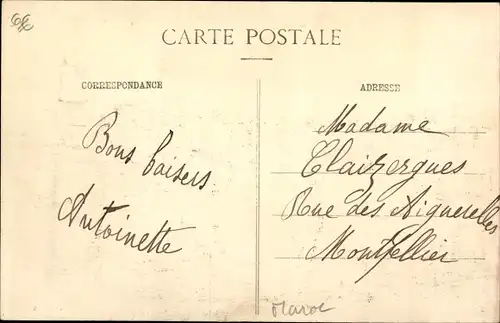 CARTE POSTALE
CORRESPONDANCE
ADRESSE
Bons baisers
Antoinette
Madame
Clauzergues
Rue des Aiguerelles
Montpellier
Maroc